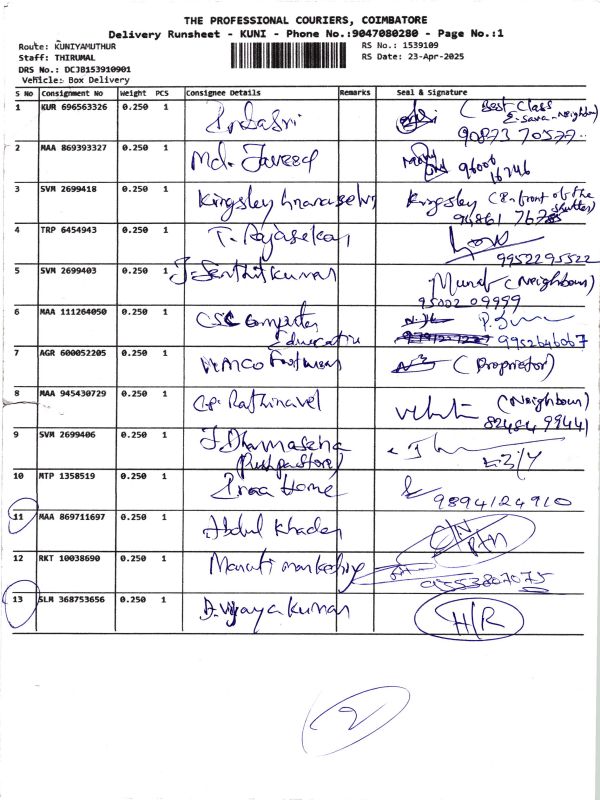 THE PROFESSIONAL COURIERS, COIMBATORE
Delivery Runsheet - KUNI - Phone No.:9047080280 - Page No.:1
Route: KUNIYAMUTHUR
RS No.: 1539109
Staff: THIRUMAL
RS Date: 23-Apr-2025
DRS No.: DCJB153910901
Vehicle: Box Delivery
S No Consignment No Weight PCS Consignee Details Remarks Seal & Signature
1 KUR 696563326 0.250 1 (Best Class
90873 70577
2 MAA 869393327 0.250 1 Md. Javeed 96006
16746
3 SVM 2699418 0.250 1 Kingsley Kingsley
4 TRP 6454943 0.250 1 T. Rajasekar
9952295522
5 SVM 2699403 0.250 1 J. Senthil kumar (Neighbour)
95002 09999
6 MAA 111264050 0.250 1 CSC Computer
Education 9952646067
7 AGR 600052205 0.250 1 Footwear (Proprietor)
8 MAA 945430729 0.250 1 G. Rathinavel (Neighbour)
82484 99441
9 SVM 2699406 0.250 1 J. Dharmasena
(Pushpa store)
10 MTP 1358519 0.250 1 Home
9894124910
11 MAA 869711697 0.250 1 Abdul Khader
12 RKT 10038690 0.250 1 Maruti marketing
9553807075
13 SLM 368753656 0.250 1 D. Vijaya kumar H/R
2